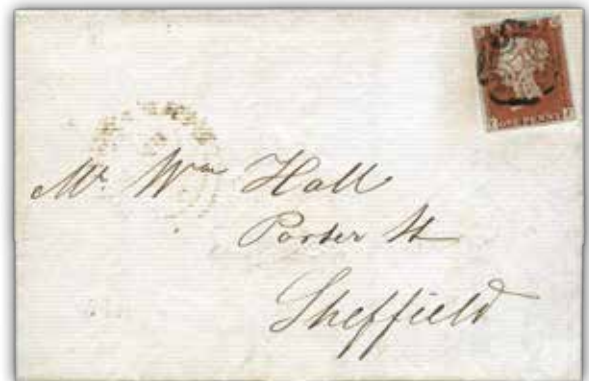 ONE PENNY
Mr. Wm Hall
Porter St
Sheffield